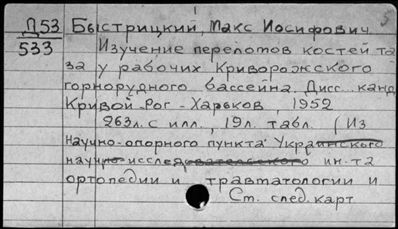 Д53 Быстрицкий, Макс Иосифович
533 Изучение перелотов костей та
за у рабочих Криворожского
горнорудного бассейна. Дисс... канд
Кривой-Рог - Харьков, 1952
263л. с илл., 19л. табл. (Из
научно-опорного пункта Украинского
научно-исследовательского ин-та
ортопедии и травтатологии и
См. след. карт